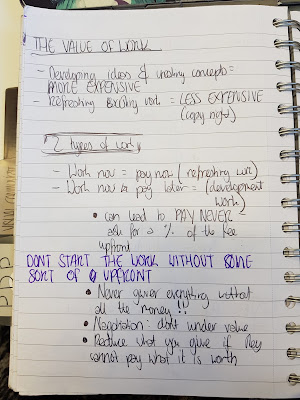 THE VALUE OF WORK
- Developing ideas & creating concepts =
MORE EXPENSIVE
- Refreshing existing work = LESS EXPENSIVE
(copy right)
2 types of work
- Work now = pay now (refreshing work)
- Work now pay later = (development
work)
• can lead to PAY NEVER
ask for a % of the fee
upfront
DONT START THE WORK WITHOUT SOME
SORT OF UPFRONT
• Never give everything without
all the money!!
• Negotiation: dont under value
• Reduce what you give if they
cannot pay what it is worth
PDP